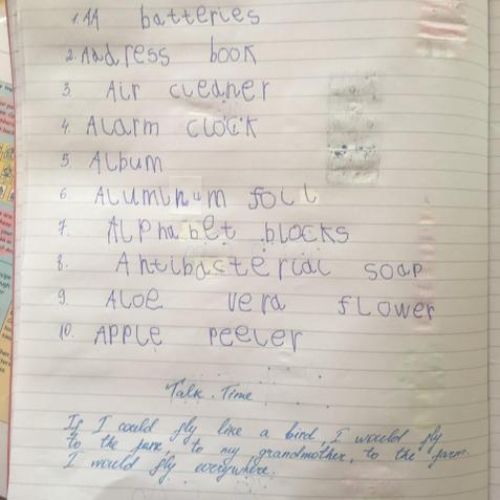 1. AA batteries
2. Address book
3. Air cleaner
4. Alarm clock
5. Album
6. Aluminum foil
7. Alphabet blocks
8. Antibacterial soap
9. Aloe vera flower
10. Apple peeler
Talk. Time
If I could fly like a bird, I would fly
to the park, to my grandmother, to the farm.
I would fly everywhere.